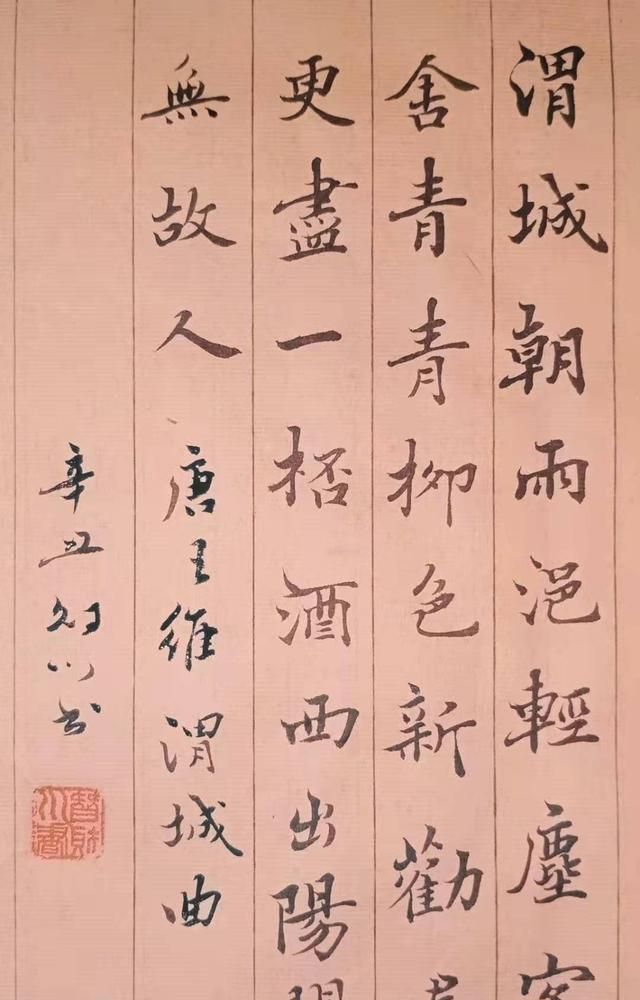 渭城朝雨浥輕塵客
舍青青柳色新勸君
更盡一桮酒西出陽關
無故人 唐王維渭城曲
辛丑
書